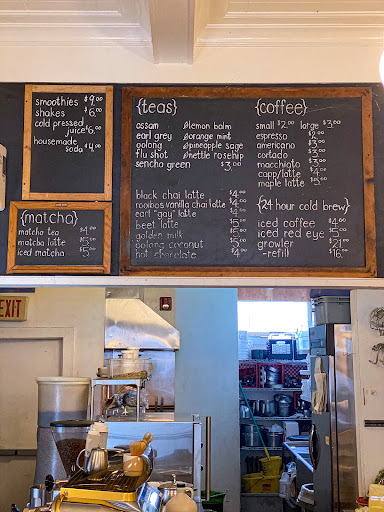 smoothies $9.00
shakes $6.00
cold pressed
juice $6.00
housemade
soda $4.00
{matcha}
matcha tea $4.00
matcha latte $5.00
iced matcha $5.00
{teas}
assam
earl grey
oolong
flu shot
sencha green
lemon balm
orange mint
pineapple sage
nettle rosehip
$3.00
black chai latte $4.00
rooibos vanilla chai latte $4.00
earl "gay" latte $4.00
beet latte $5.00
golden milk $5.00
oolong coconut $5.00
hot chocolate $4.00
{coffee}
small $2.00 large $3.00
espresso $2.00
americano $3.00
cortado $3.00
macchiato $3.00
capp/latte $4.00
maple latte $5.00
{24 hour cold brew}
iced coffee $4.00
iced red eye $5.00
growler $21.00
-refill $16.00
EXIT